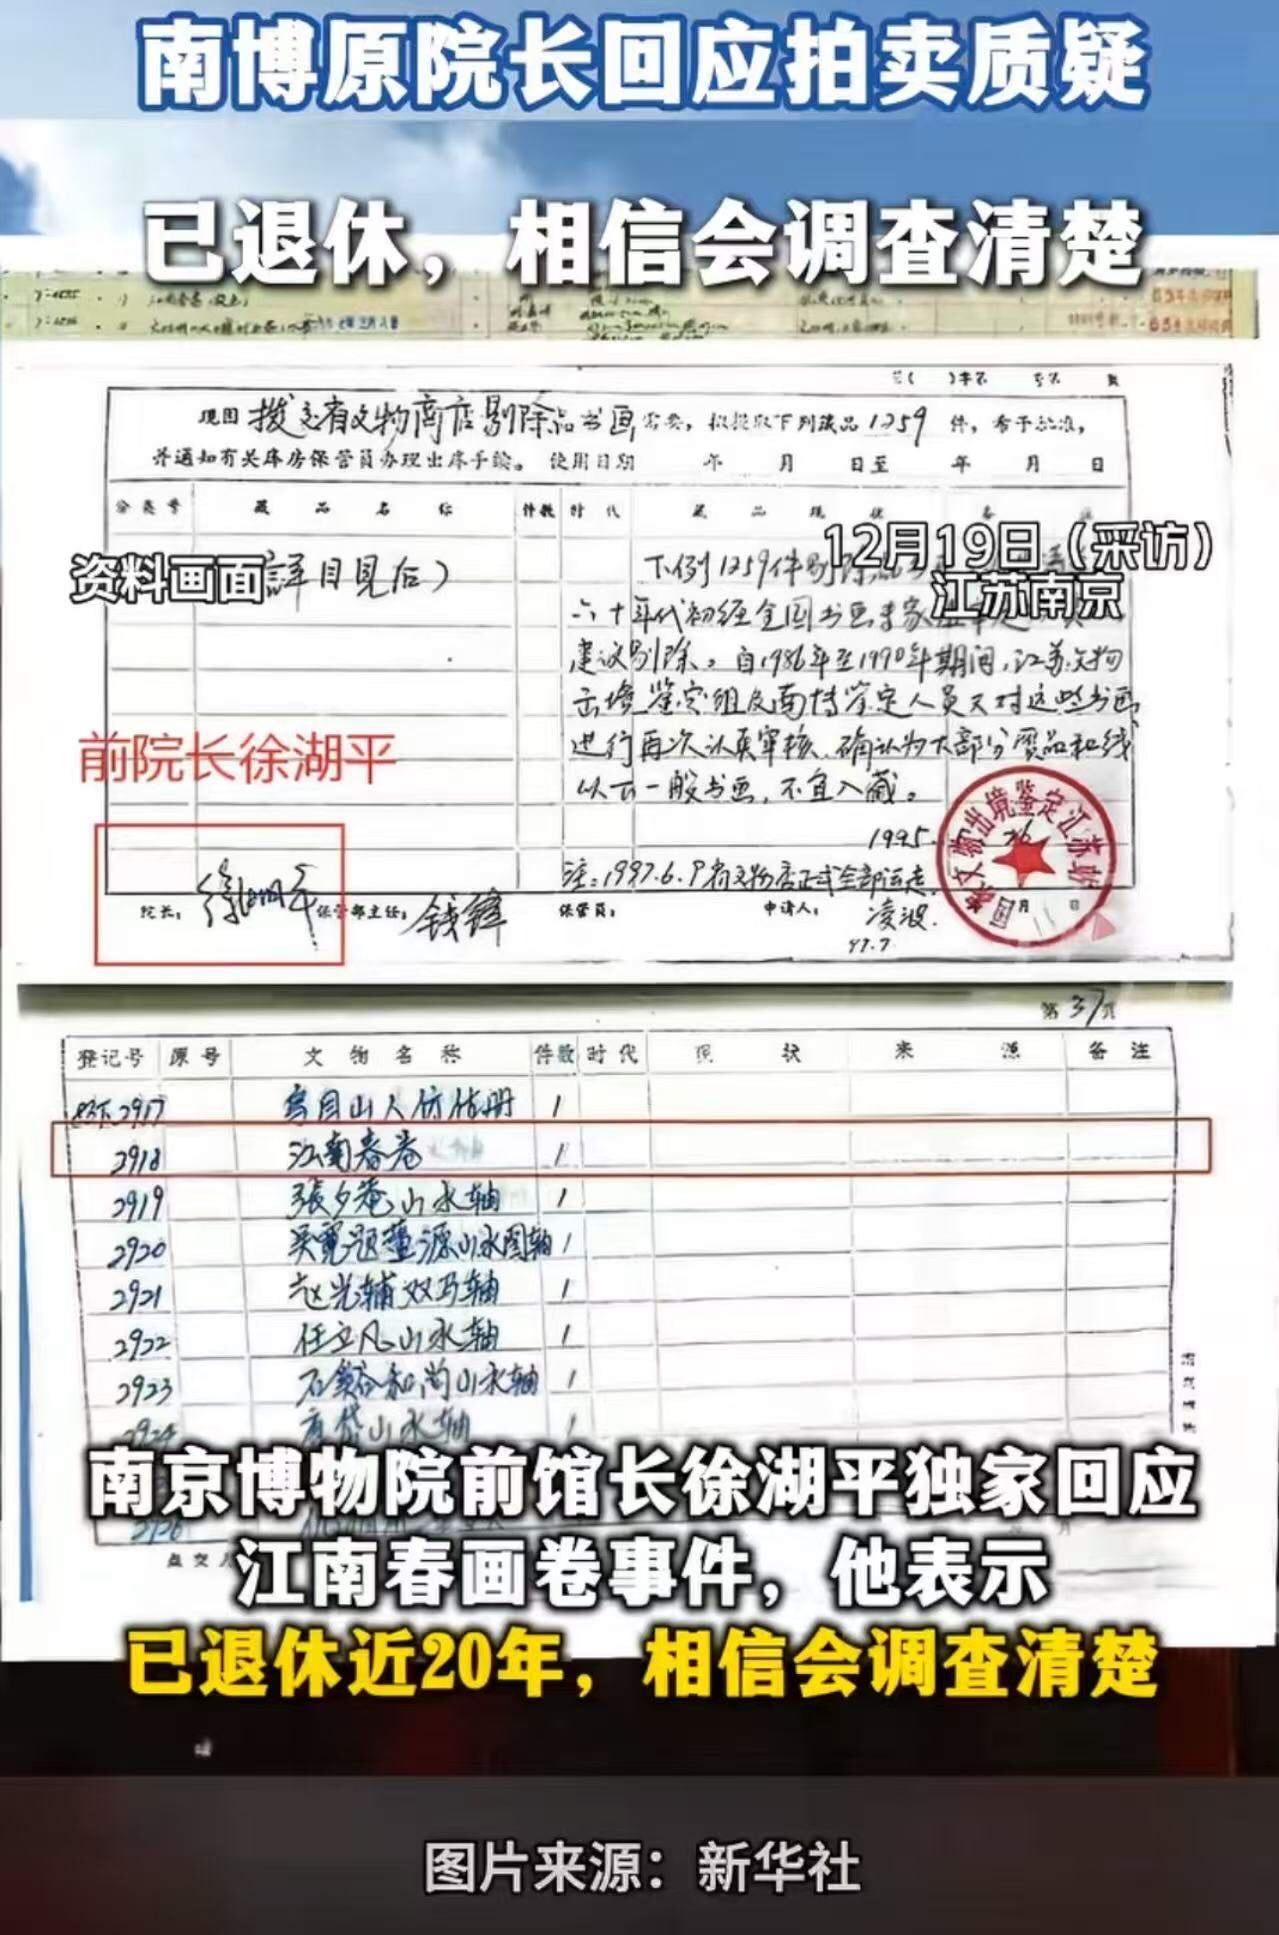 南博原院长回应拍卖质疑
已退休，相信会调查清楚
现因 拨交省文物商店剔除品书画 需要，拟提取下列藏品 1259 件，希予批准，
并通知有关库房保管员办理出库手续。 使用日期 年 月 日至 年 月 日
分类号 藏品名称 件数 时代 藏品现状 备
资料画面
12月19日（采访）
江苏南京
详目见后）
下列1259件剔除
六十年代初经全国书画专家
建议剔除。自1986年至1990年期间，江苏文物
出境鉴定组及南博鉴定人员又对这些书画
进行再次认真审核，确认为大部分赝品和线
以下一般书画，不宜入藏。
1995.
前院长徐湖平
注：1997.6.9省文物店正式全部运走
院长： 徐湖平 保管部主任： 钱锋 保管员： 申请人： 凌波
97.7
文物出境鉴定江苏站
月 日
第 37 页
登记号 原号 文物名称 件数 时代 现状 来源 备注
2917 仿古册 1
2918 江南春卷 1
2919 张夕庵山水轴 1
2920 吴宽题董源山水图轴 1
2921 赵光辅双马轴 1
2922 任立凡山水轴 1
2923 石溪和尚山水轴 1
2924 山水轴
点交
南京博物院前馆长徐湖平独家回应
江南春画卷事件，他表示
已退休近20年，相信会调查清楚
图片来源：新华社